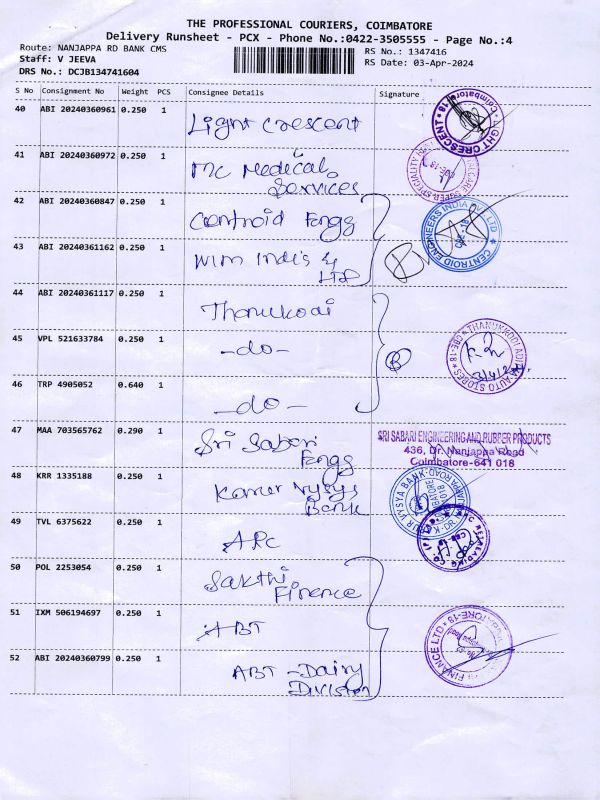 THE PROFESSIONAL COURIERS, COIMBATORE
Delivery Runsheet - PCX - Phone No.:0422-3505555 - Page No.:4
Route: NANJAPPA RD BANK CMS RS No.: 1347416
Staff: V JEEVA RS Date: 03-Apr-2024
DRS No.: DCJB134741604
S No Consignment No Weight PCS Consignee Details Signature
40 ABI 20240360961 0.250 1 Light Crescent
LIGHT CRESCENT Coimbatore 18
41 ABI 20240360972 0.250 1 MC Medical
Services
42 ABI 20240360847 0.250 1 Centroid Engg
CENTROID ENGINEERS INDIA PVT LTD CBE-18
43 ABI 20240361162 0.250 1 WIM Indi's &
LTD
44 ABI 20240361117 0.250 1 Thanukodi
45 VPL 521633784 0.250 1 -do-
THANUKKODI AUTO STORES CBE-18
3/4/24
46 TRP 4905052 0.640 1 -do-
47 MAA 703565762 0.290 1 Sri Sabari
Engg
SRI SABARI ENGINEERING AND RUBBER PRODUCTS
436, Dr. Nanjappa Road
Coimbatore-641 018
48 KRR 1335188 0.250 1 Karur Vysys
Bank
49 TVL 6375622 0.250 1 ARC
50 POL 2253054 0.250 1 Sakthi
Finence
51 IXM 506194697 0.250 1 ABT
FINANCE LTD
52 ABI 20240360799 0.250 1 ABT - Dairy
Division